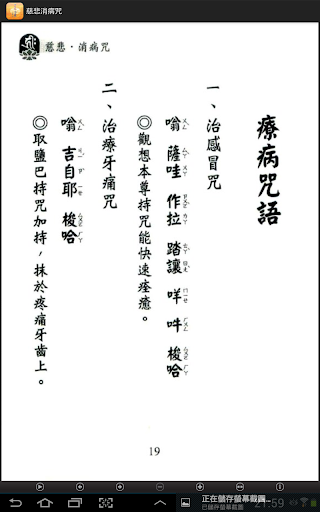 慈悲消病咒
慈悲・消病咒
療病咒語
一、治感冒咒
嗡 薩哇 作拉 踏讓 咩 吽 梭哈
◎觀想本尊持咒能快速痊癒。
二、治療牙痛咒
嗡 吉自耶 梭哈
◎取鹽巴持咒加持，抹於疼痛牙齒上。
19
正在儲存螢幕截圖...
已儲存螢幕截圖
21:59